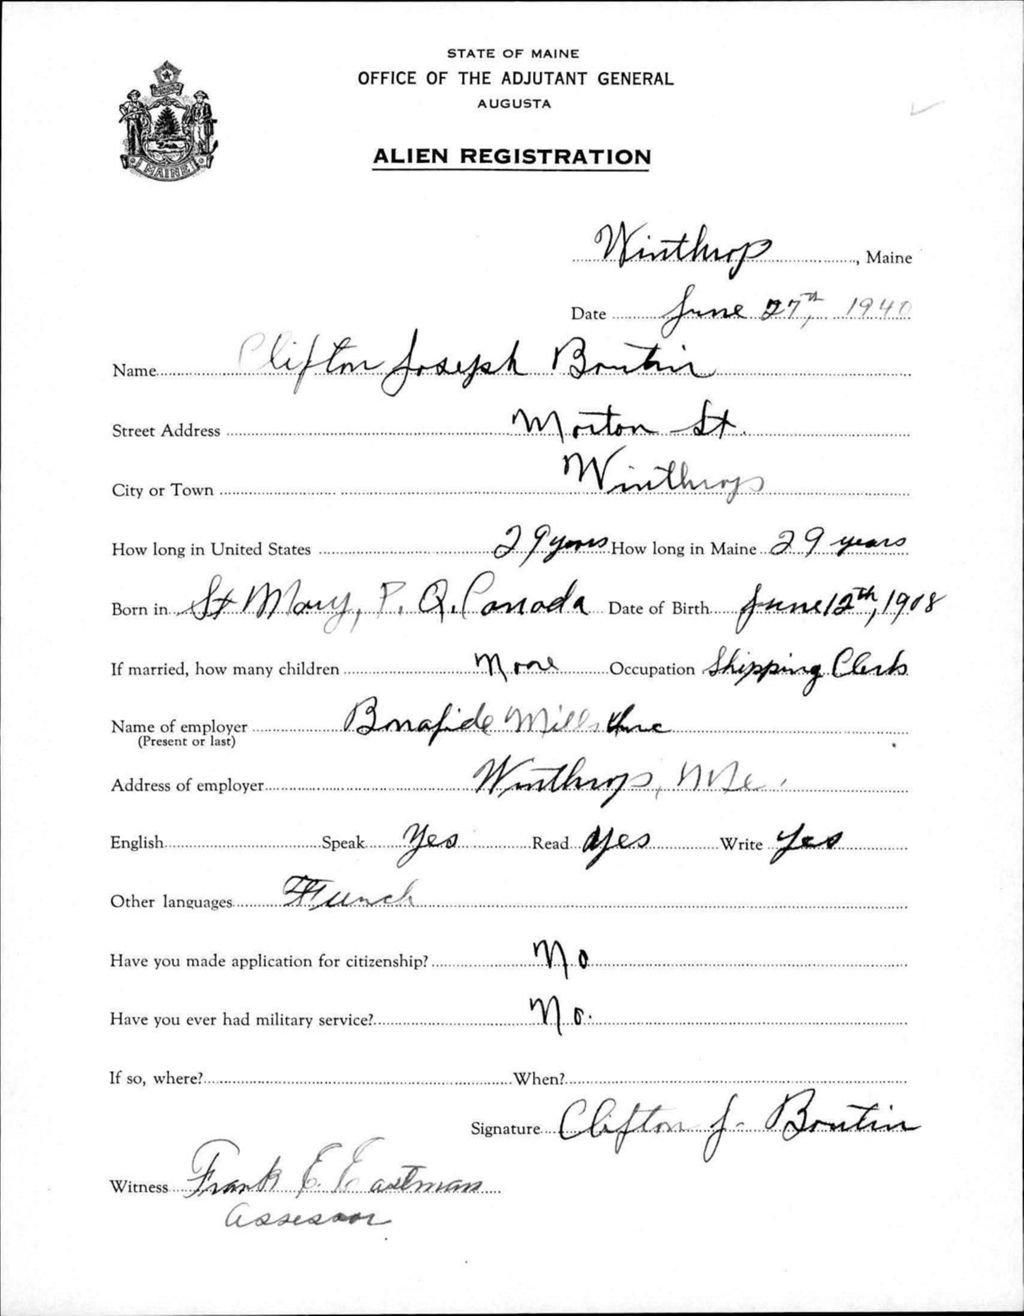 STATE OF MAINE
OFFICE OF THE ADJUTANT GENERAL
AUGUSTA
ALIEN REGISTRATION
MAINE
Winthrop, Maine
Date June 27th, 1940
Name Clifton Joseph Boutin
Street Address Morton St.
City or Town Winthrop
How long in United States 29 years How long in Maine 29 years
Born in St Mary, P. Q. Canada Date of Birth June 12th, 1908
If married, how many children None Occupation Shipping Clerk
Name of employer Bonafide Mills Inc
(Present or last)
Address of employer Winthrop, Me.
English Speak Yes Read Yes Write Yes
Other languages French
Have you made application for citizenship? No
Have you ever had military service? No.
If so, where? When?
Signature Clifton J. Boutin
Witness Frank E. Eastman
Assessor